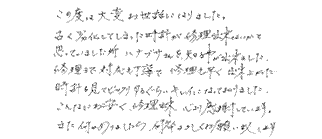 この度は大変お世話になりました。
古く劣化してしまった時計が修理出来ないかと
思っていました所ハナブサさんを知る事が出来ました。
修理まで対応も丁寧で修理も早く出来上がった
時計を見てビックリするくらいキレイになっておりました。
こんなにお安く修理出来、心から感謝しています。
また何かありましたら、何卒よろしくお願い致します